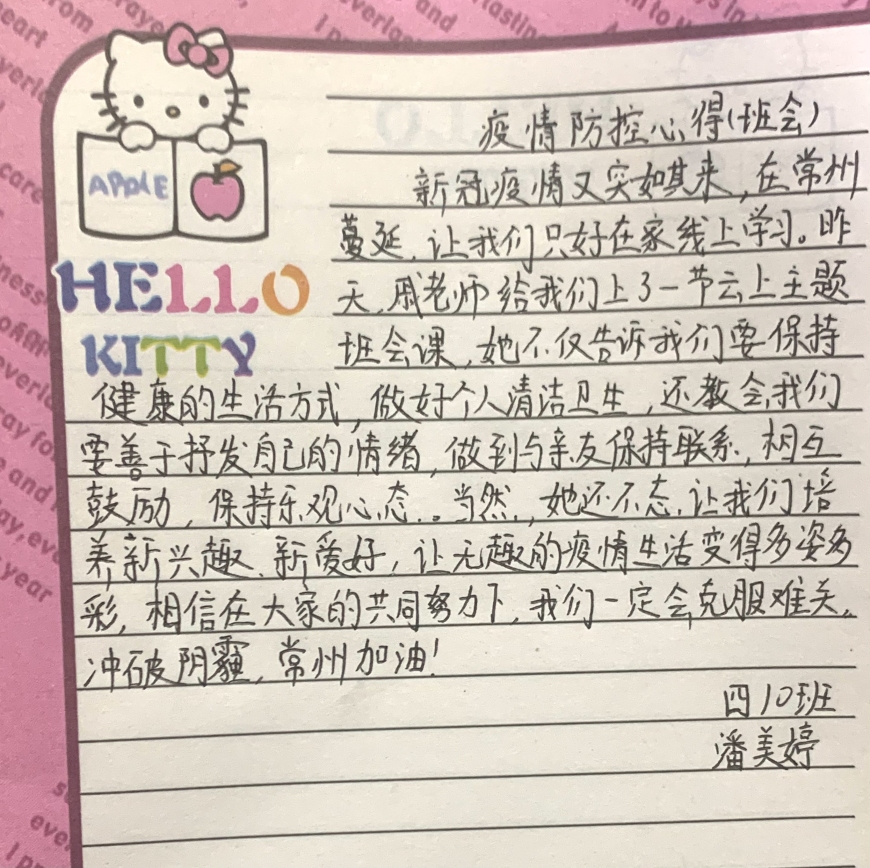 疫情防控心得(班会)
新冠疫情又突如其来,在常州
蔓延,让我们只好在家线上学习。昨
天,戚老师给我们上了一节云上主题
班会课,她不仅告诉我们要保持
健康的生活方式,做好个人清洁卫生,还教会我们
要善于抒发自己的情绪,做到与亲友保持联系,相互
鼓励,保持乐观心态..当然,她还不态,让我们培
养新兴趣、新爱好,让无趣的疫情生活变得多姿多
彩,相信在大家的共同努力下,我们一定会克服难关,
冲破阴霾,常州加油!
四10班
潘美婷
APPLE
HELLO
KITTY